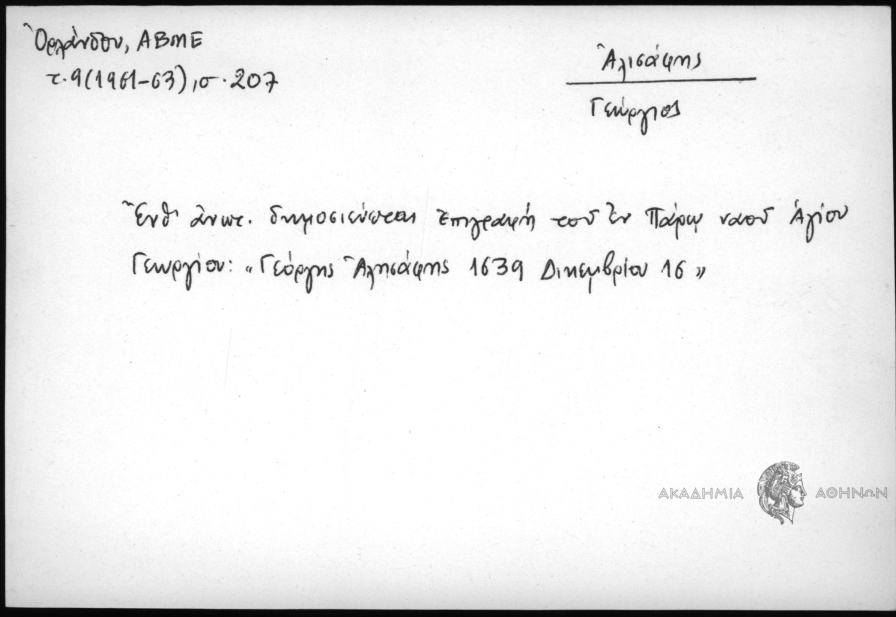 Ὀρλάνδου, ΑΒΜΕ
τ. 9 (1961-63), σ. 207
Ἀλισάφης
Γεώργιος
Ἔνθ' ἀνωτ. δημοσιεύεται ἐπιγραφή τοῦ ἐν Πάρῳ ναοῦ Ἁγίου
Γεωργίου: «Γεόργης Ἀλησάφης 1639 Δικεμβρίου 16»
ΑΚΑΔΗΜΙΑ ΑΘΗΝΩΝ